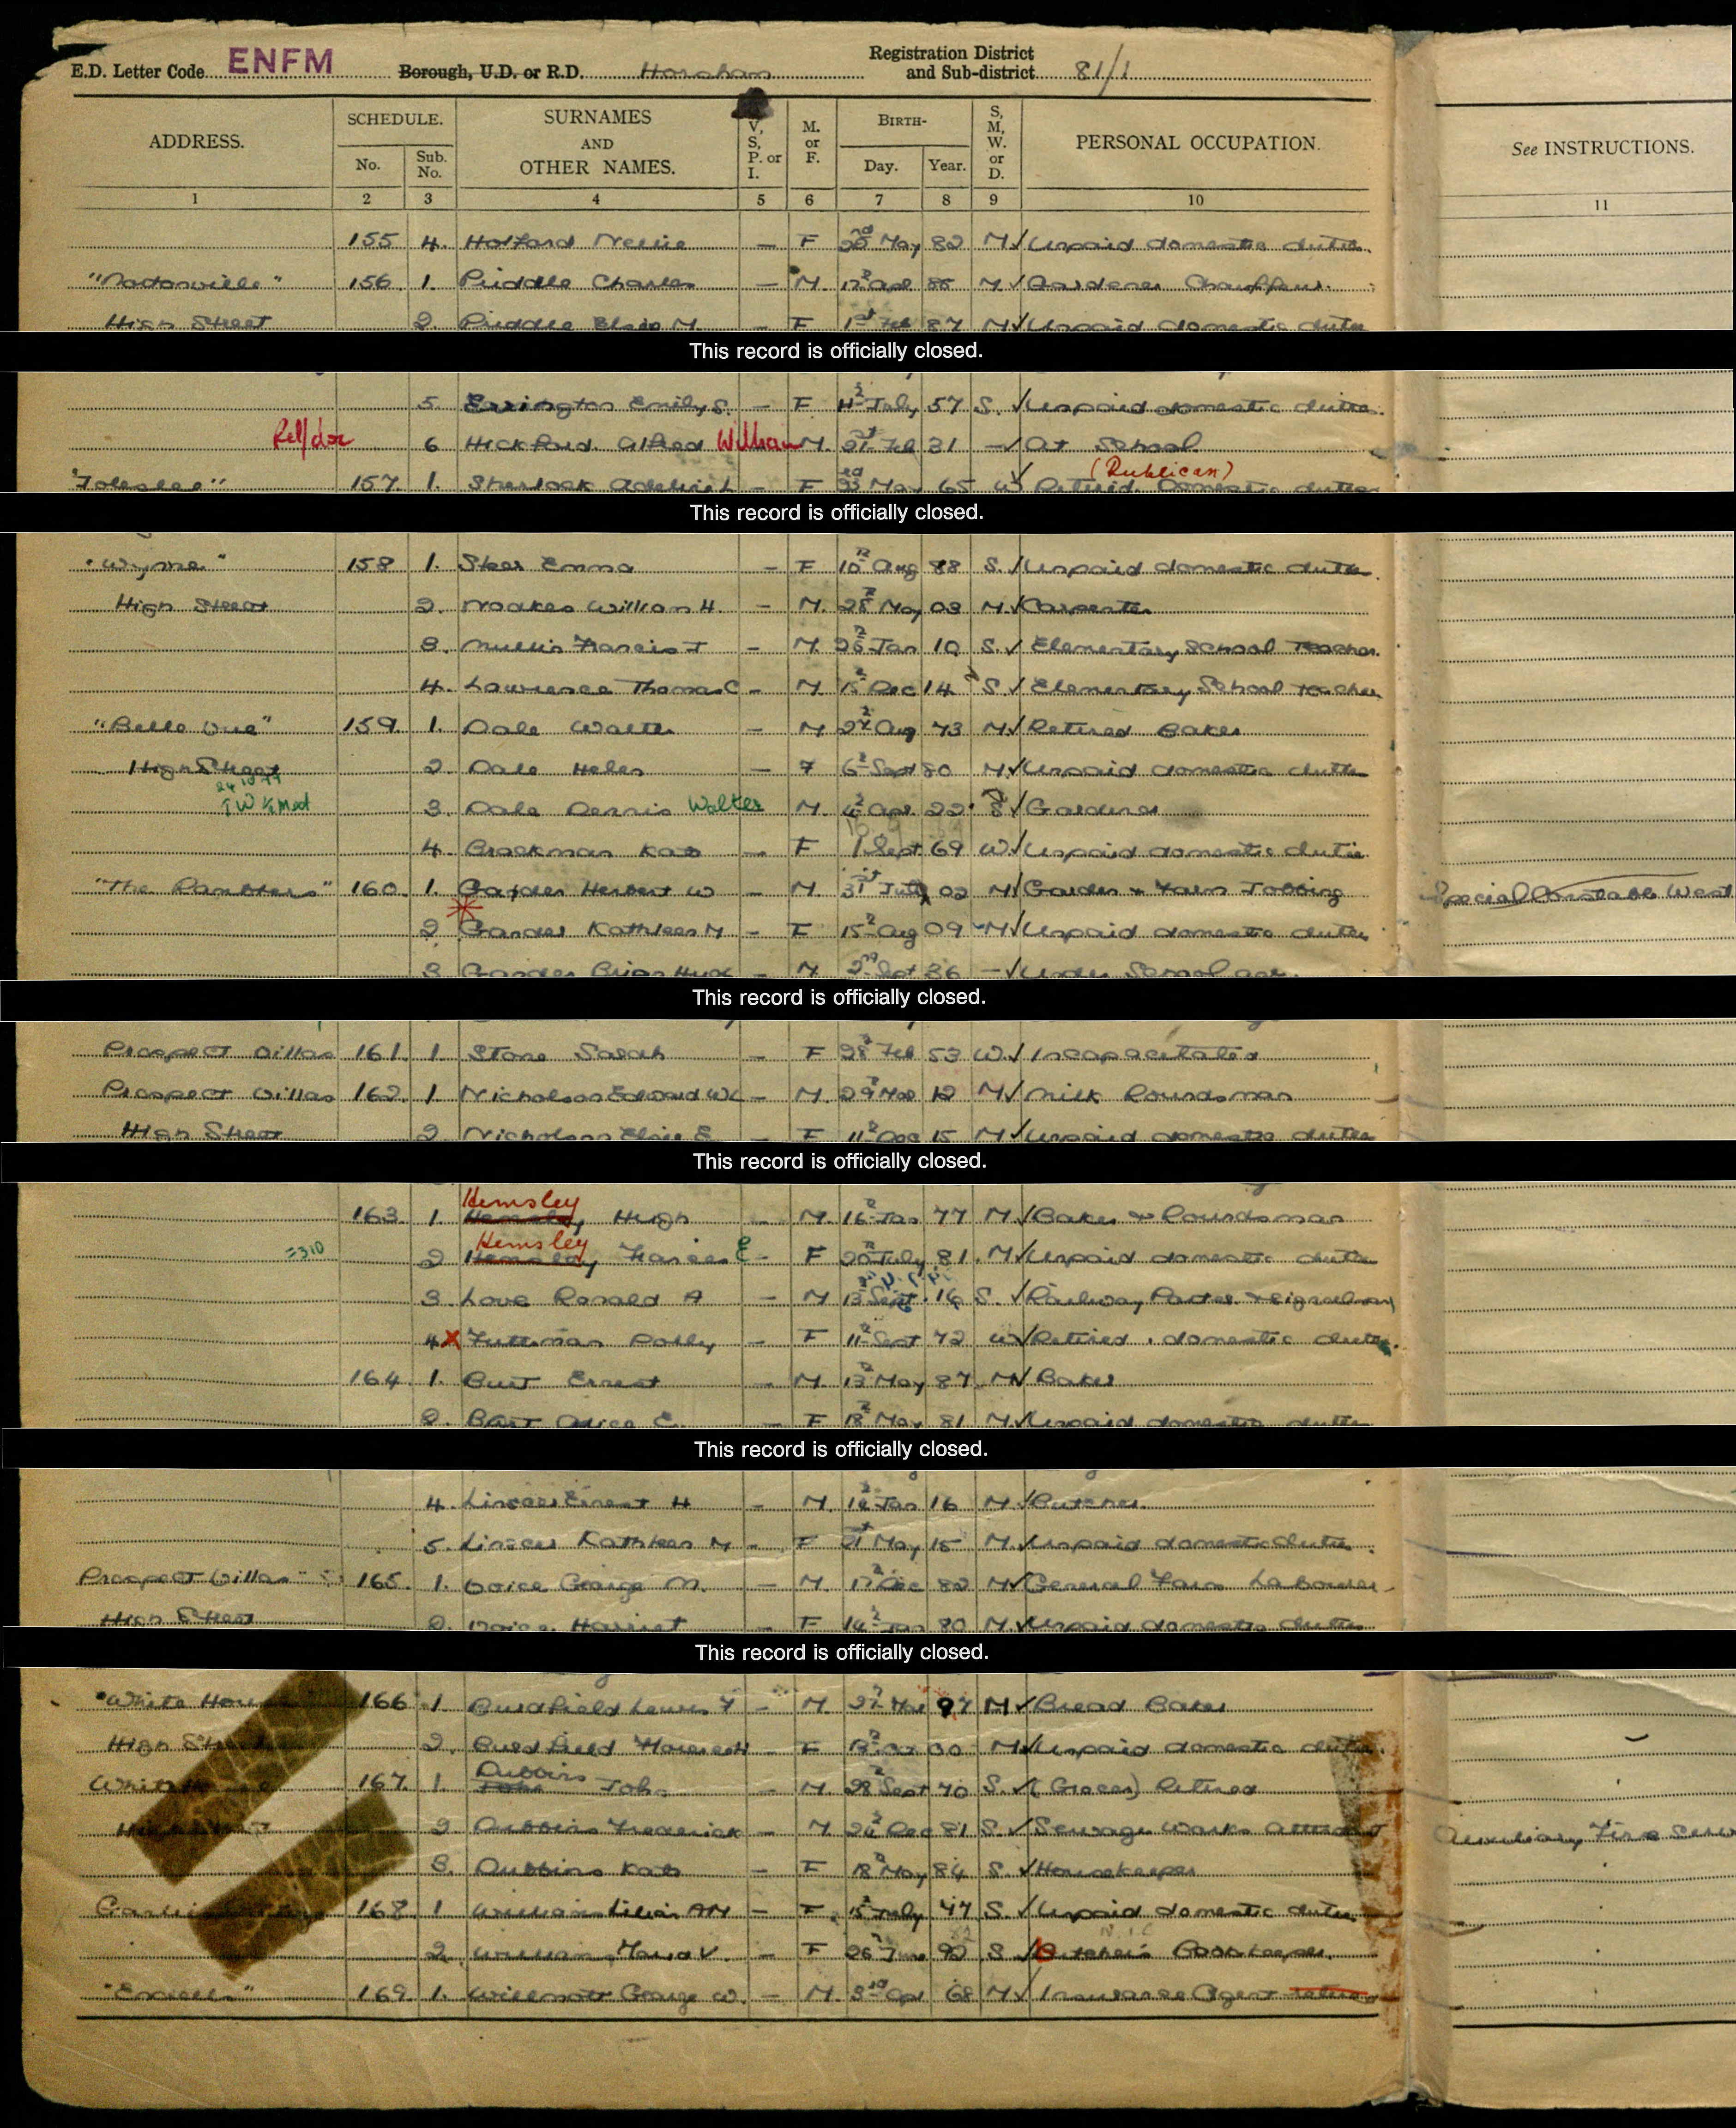 E.D. Letter Code ENFM Borough, U.D. or R.D. Horsham Registration District and Sub-district 81/1
ADDRESS. SCHEDULE. No. Sub. No. SURNAMES AND OTHER NAMES. V, S, P. or I. M. or F. BIRTH- Day. Year. S, M, W. or D. PERSONAL OCCUPATION. See INSTRUCTIONS.
1 2 3 4 5 6 7 8 9 10 11
155 4. Holford Nellie — F May 82 M Unpaid domestic duties
156 1. Piddle Charles — M. Apl M Gardener Chauffeur.
High Street 2. Piddle Elsie M. — F 1st Feb 87 M Unpaid domestic duties
This record is officially closed.
5. Errington Emily S. — F July 57 S. Unpaid domestic duties
6 Hickford Alfred William M. 21st Feb 31 — At School
157 1. Sherlock — F May 65 W Retired Domestic duties (Publican)
This record is officially closed.
158 1. Emma — F 10th Aug 88 S. Unpaid domestic duties
High Street 2. Noakes William H. — M. 28th May 03 M Carpenter
3. Francis J — M. Jan 10 S. Elementary School Teacher
4. Lawrence Thomas C — M. Dec 14 S Elementary School Teacher
"Belle Vue" 159 1. Dale Walter — M Aug 73 M Retired Baker
High Street 2. Dale Helen — F 6th Sept 80 M Unpaid domestic duties
3. Dale Dennis Walter M. 4th Apr 22 S Gardener
4. Brockman Kate — F 1 Sept 69 W Unpaid domestic duties
"The Ramblers" 160 1. Gander Herbert W — M. 31st July 02 M Garden & Farm Jobbing Special Constable West
2. Gander Kathleen M — F 15th Aug 09 M Unpaid domestic duties
3 Gander Brian — M 2nd Sept 36 — Under School age.
This record is officially closed.
Prospect Villas 161 1 Stone Sarah — F 28th Feb 53 W. Incapacitated
Prospect Villas 162 1. Nicholson Edward W — M. 29th 12 M Milk Roundsman
High Street 2. Nicholson Elsie E — F 11th Dec 15 M Unpaid domestic duties
This record is officially closed.
163 1. Hemsley Hugh — M. 16th Jan 77 M Baker & Roundsman
2 Hemsley Frances E — F 20th July 81 M Unpaid domestic duties
3. Love Ronald A — M 13th Sept 16 S. Railway Porter & Signalman
4 X Polly — F 11th Sept 72 W Retired domestic duties
164 1. Burt Ernest — M. 13th May 87 M Baker
2. Burt Alice E. — F 18th May 81 M Unpaid domestic duties
This record is officially closed.
4. Ernest H — M. Jan 16 M Butcher
5. Kathleen M — F 21st May 15 M Unpaid domestic duties
Prospect Villas 165 1. Voice George M. — M. 17th Dec 82 M General Farm Labourer
High Street 2. Voice Harriet F 14th Jan 80 M Unpaid domestic duties
This record is officially closed.
"White House 166 1. Burdfield Lewis F — M. 27th 97 M Bread Baker
High 2. Burdfield Florence H — F 00 M Unpaid domestic duties
White 167 1 Dubbins John — M. 28th Sept 70 S. (Grocer) Retired
2 Dubbins Frederick — M 24th Dec 81 S. Sewage Works Attendant Auxiliary Fire
3. Dubbins Kate — F 18th May 84 S. Housekeeper
168 1. Lilian AM — F 15th July S. Unpaid domestic duties
2. V. — F 26th June S Butcher's Book keeper
169 1. Willmott George W. — M. 3rd Apl 68 M Insurance Agent